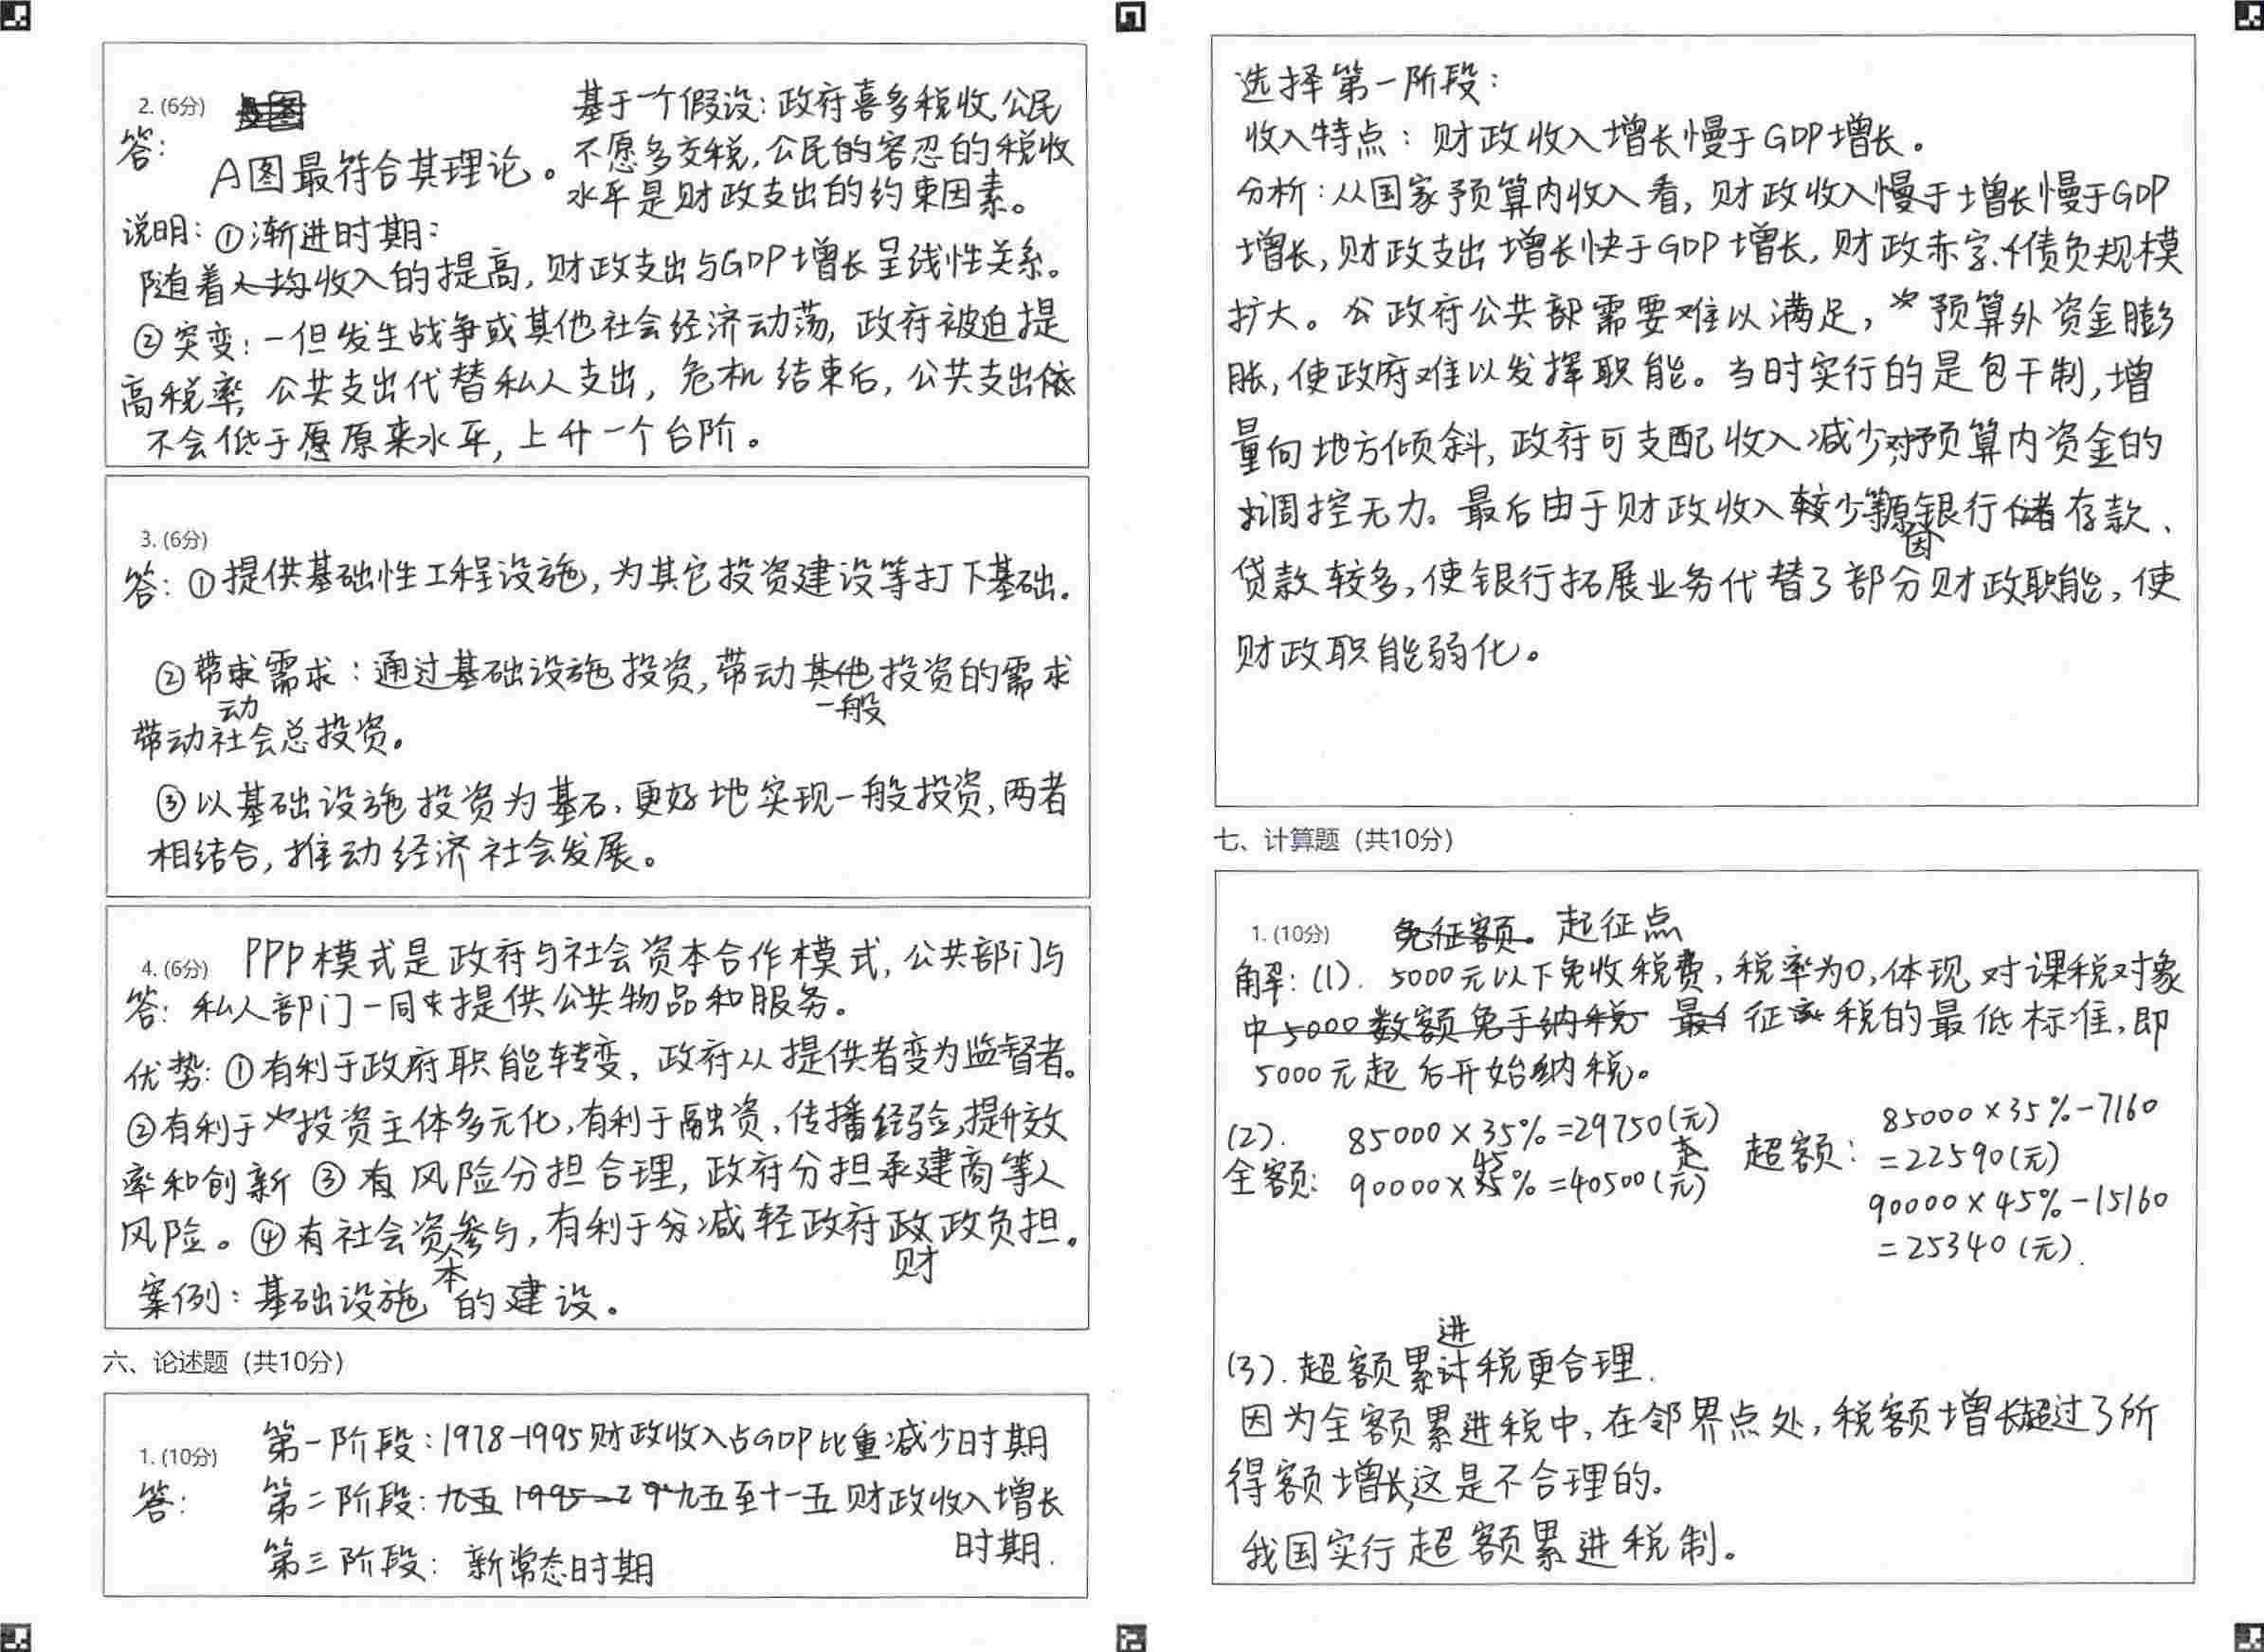 2. (6分)
基于一个假设：政府喜多税收，公民
不愿多交税，公民的容忍的税收
水平是财政支出的约束因素。
答：
A图最符合其理论。
说明：①渐进时期：
随着人均收入的提高，财政支出与GDP增长呈线性关系。
②突变：一但发生战争或其他社会经济动荡，政府被迫提
高税率，公共支出代替私人支出，危机结束后，公共支出依
不会低于原来水平，上升一个台阶。
3. (6分)
答：①提供基础性工程设施，为其它投资建设等打下基础。
②带动需求：通过基础设施投资，带动一般投资的需求
带动社会总投资。
③以基础设施投资为基石，更好地实现一般投资，两者
相结合，推动经济社会发展。
4. (6分) PPP模式是政府与社会资本合作模式，公共部门与
答：私人部门一同提供公共物品和服务。
优势：①有利于政府职能转变，政府从提供者变为监督者。
②有利于投资主体多元化，有利于融资，传播经验，提升效
率和创新 ③风险分担合理，政府分担承建商等人
风险。④有社会资本参与，有利于减轻政府财政负担。
案例：基础设施的建设。
六、论述题（共10分）
1. (10分)
答：
第一阶段：1978-1995财政收入占GDP比重减少时期
第二阶段：九五至十一五财政收入增长
时期.
第三阶段：新常态时期
选择第一阶段：
收入特点：财政收入增长慢于GDP增长。
分析：从国家预算内收入看，财政收入慢于增长慢于GDP
增长，财政支出增长快于GDP增长，财政赤字、债负规模
扩大。政府公共需要难以满足，预算外资金膨
胀，使政府难以发挥职能。当时实行的是包干制，增
量向地方倾斜，政府可支配收入减少，对预算内资金的
调控无力。最后由于财政收入较少等原因银行储存款、
贷款较多，使银行拓展业务代替了部分财政职能，使
财政职能弱化。
七、计算题（共10分）
1. (10分) 免征额。起征点
解：(1). 5000元以下免收税费，税率为0，体现对课税对象
中5000数额免于纳税 征税的最低标准，即
5000元起后开始纳税。
(2).
全额：
85000×35%=29750(元)
90000×45%=40500(元)
超额：
85000×35%-7160
=22590(元)
90000×45%-15160
=25340(元).
(3). 超额累进税更合理.
因为全额累进税中，在邻界点处，税额增长超过了所
得额增长，这是不合理的。
我国实行超额累进税制。